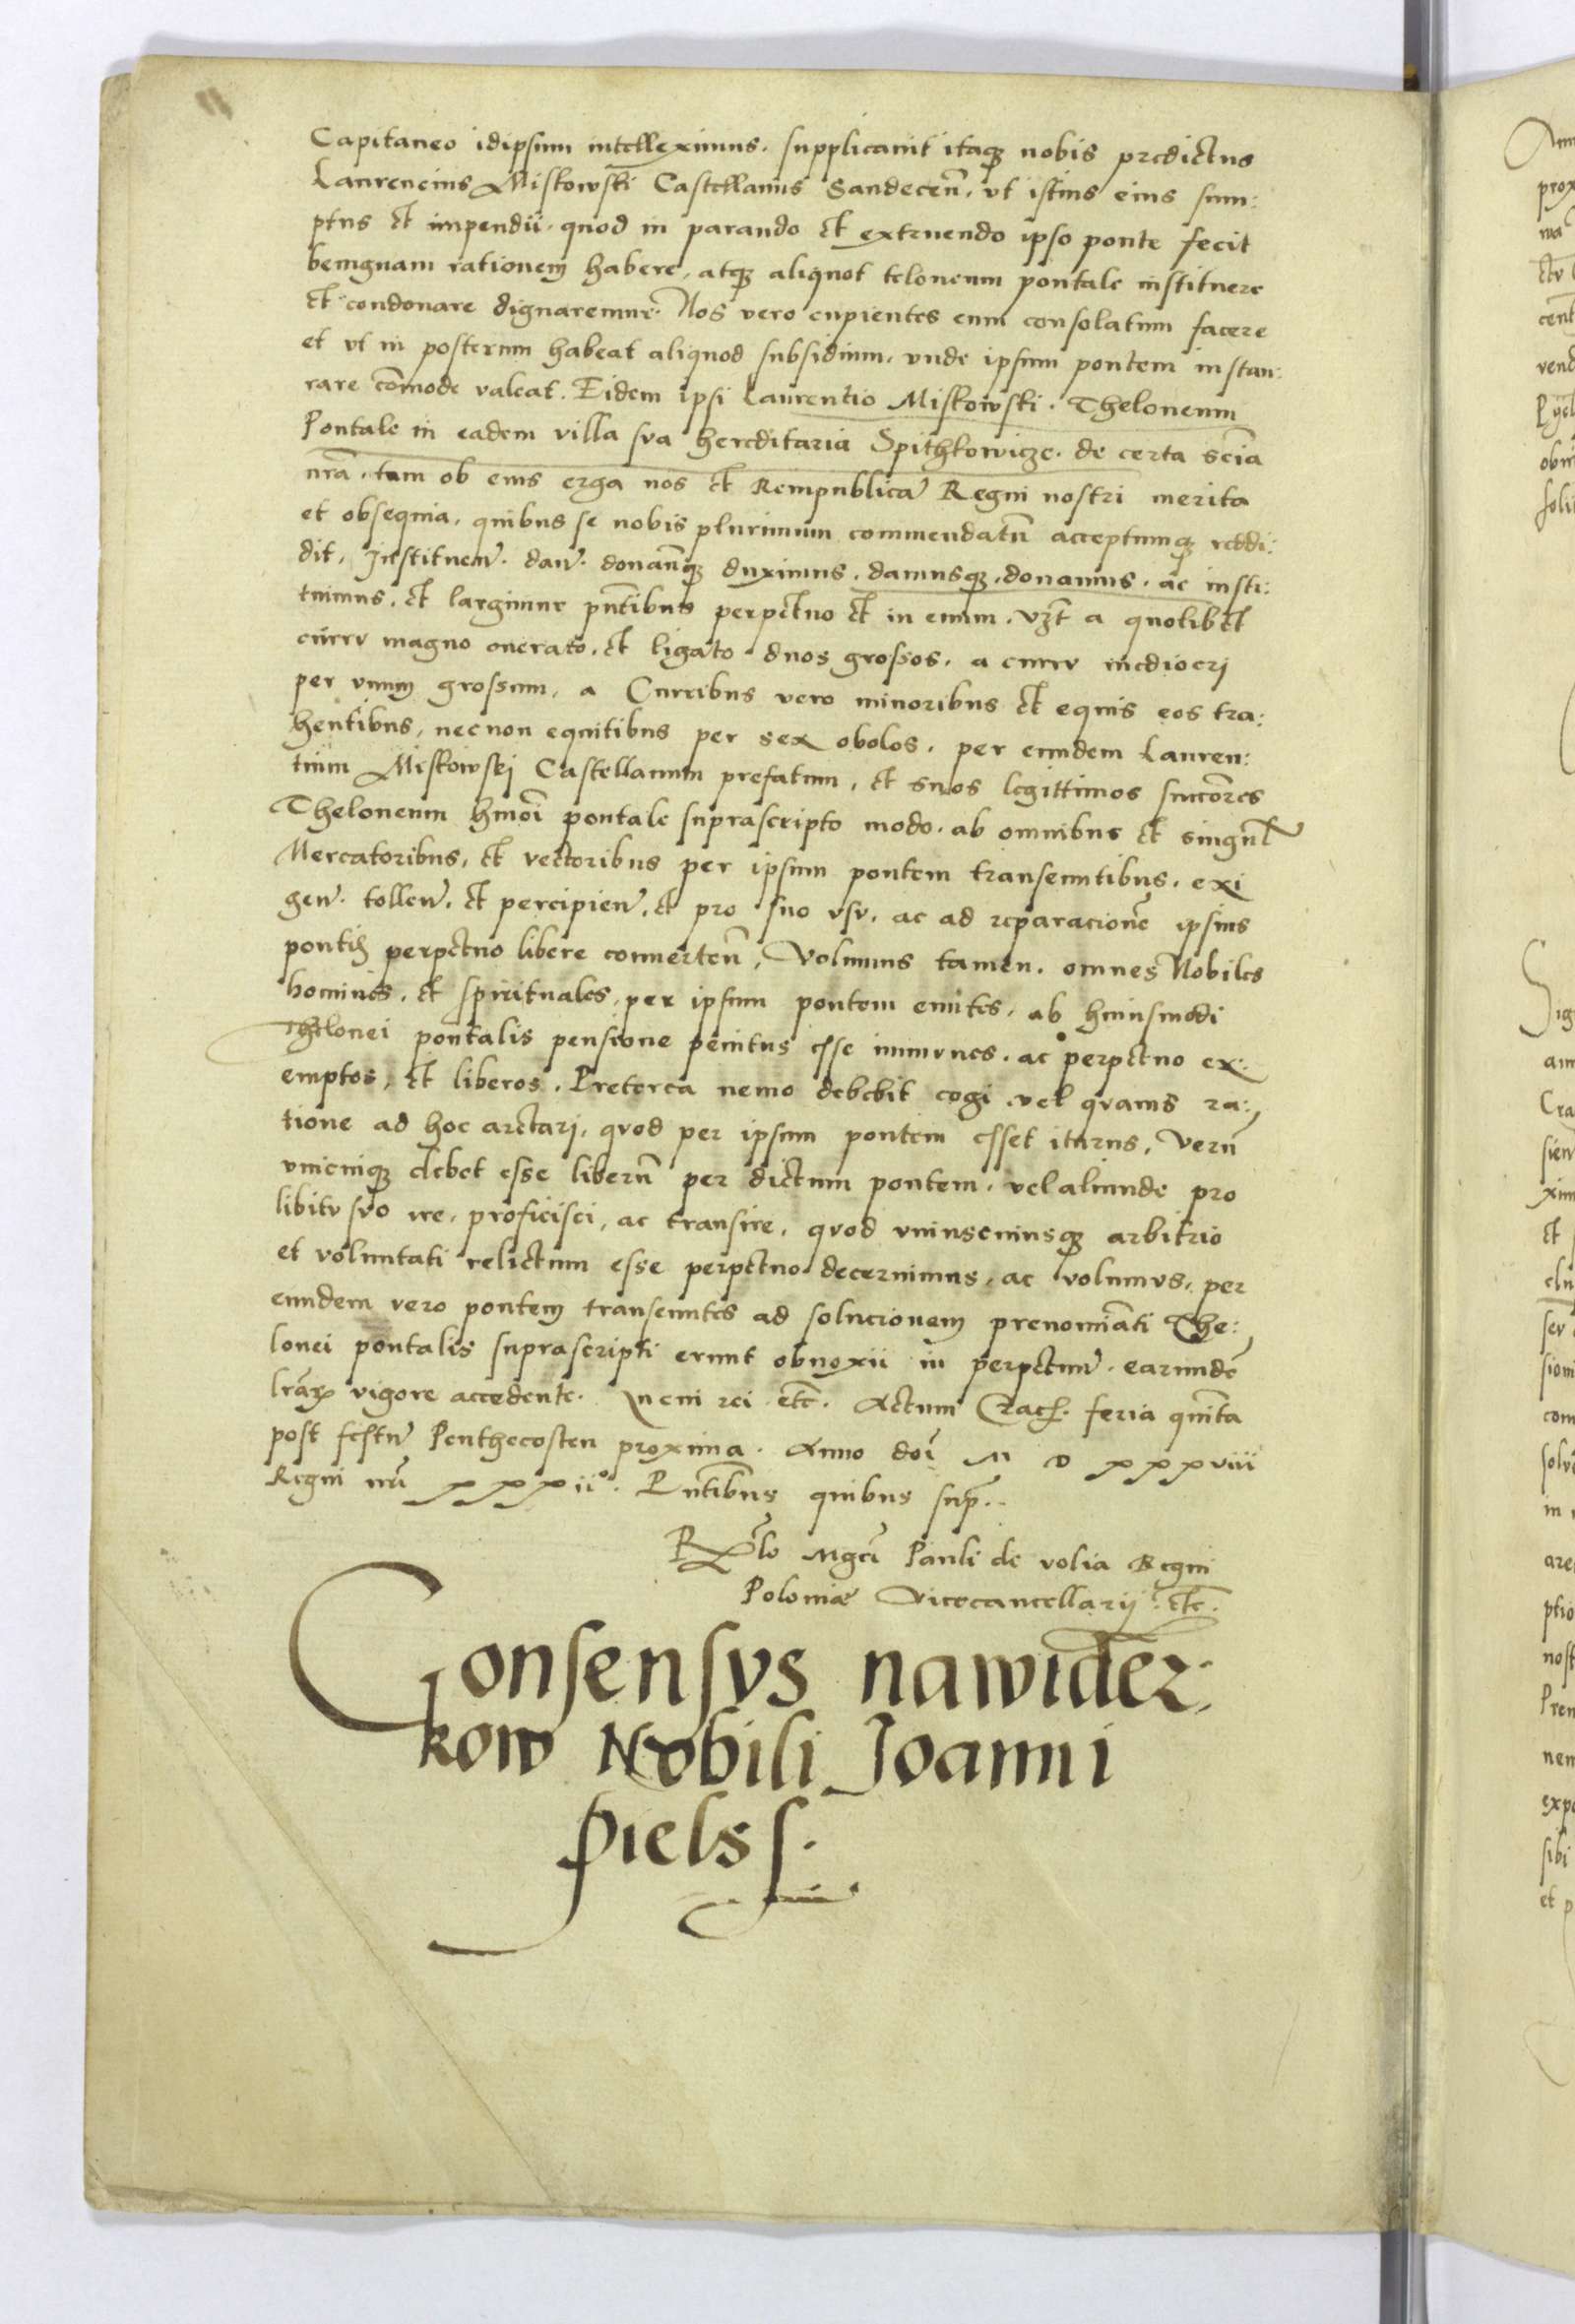 Capitaneo idipsum intelleximus. supplicauit itaq₃ nobis predictus
Laurencius Miskowski Castellanus Sandecen̄. vt istius eius sum:
ptus et impendii. quod in parando et extruendo ipso ponte fecit
benignam rationem habere, atq₃ aliquot teloneum pontale instituere
et condonare dignaremur. Nos vero cupientes eum consolatum facere
et vt in posterum habeat aliquod subsidium. vnde ipsum pontem instau:
rare com̄ode valeat. Eidem ipsi Laurentio Miskowski. Theloneum
Pontale in eadem villa sva hereditaria Spithkowicze. de certa scīa
nr̄a. tam ob eius erga nos et Rempublicā Regni nostri merita
et obsequia, quibus se nobis plurimum commendatū acceptumq₃ reddi:
dit, Instituen̄. dan̄. donan̄q₃ duximus, damusq₃. donamus. ac insti:
tuimus, et largimur pn̄tibus perpetuo et in euum. vz̄t a quolibet
curru magno onerato, et ligato duos grossos. a curru mediocri
per vnum grossum, a Curribus vero minoribus et equis eos tra:
hentibus, necnon equitibus per sex obolos. per eundem Lauren:
tium Miskowskj Castellanum prefatum, et suos legittimos succōres
Theloneum hmōi pontale suprascripto modo. ab omnibus et singul̄
Mercatoribus, et vectoribus per ipsum pontem transeuntibus. exi
gen̄. tollen̄. et percipien̄. et pro suo vsv. ac ad reparacionē ipsius
pontis perpetuo libere conuerten̄. Volumus tamen. omnes Nobiles
homines, et spirituales, per ipsum pontem euntes, ab huiusmodi
Thelonei pontalis pensione penitus esse immunes. ac perpetuo ex:
emptos, et liberos. Preterea nemo debebit cogi vel quauis ra:
tione ad hoc arctarj, qvod per ipsum pontem esset iturus, Verū
vnicuiq₃ debet esse liberū per dictum pontem. vel aliunde pro
libitv svo ire, proficisci, ac transire, qvod vniuscuiusq₃ arbitrio
et voluntati relictum esse perpetuo decernimus, ac volumvs, per
eundem vero pontem transeuntes ad solucionem prenomīati The:
lonei pontalis suprascripti erunt obnoxii in perpetuū. earundē
lrāꝝ vigore accedente. In cui rei etc̄. Actum Crac̄. feria quīta
post festū Penthecosten proxima. Anno doī M D xxxviii
Regni nrī xxxii°. Pn̄tibus quibus sup̄..
Rēlo Mgcī Pauli de volia Regni
Poloniæ Vicecancellarij etc̄.
Consensvs nawider:
kow Nobili Joanni
Piels s.